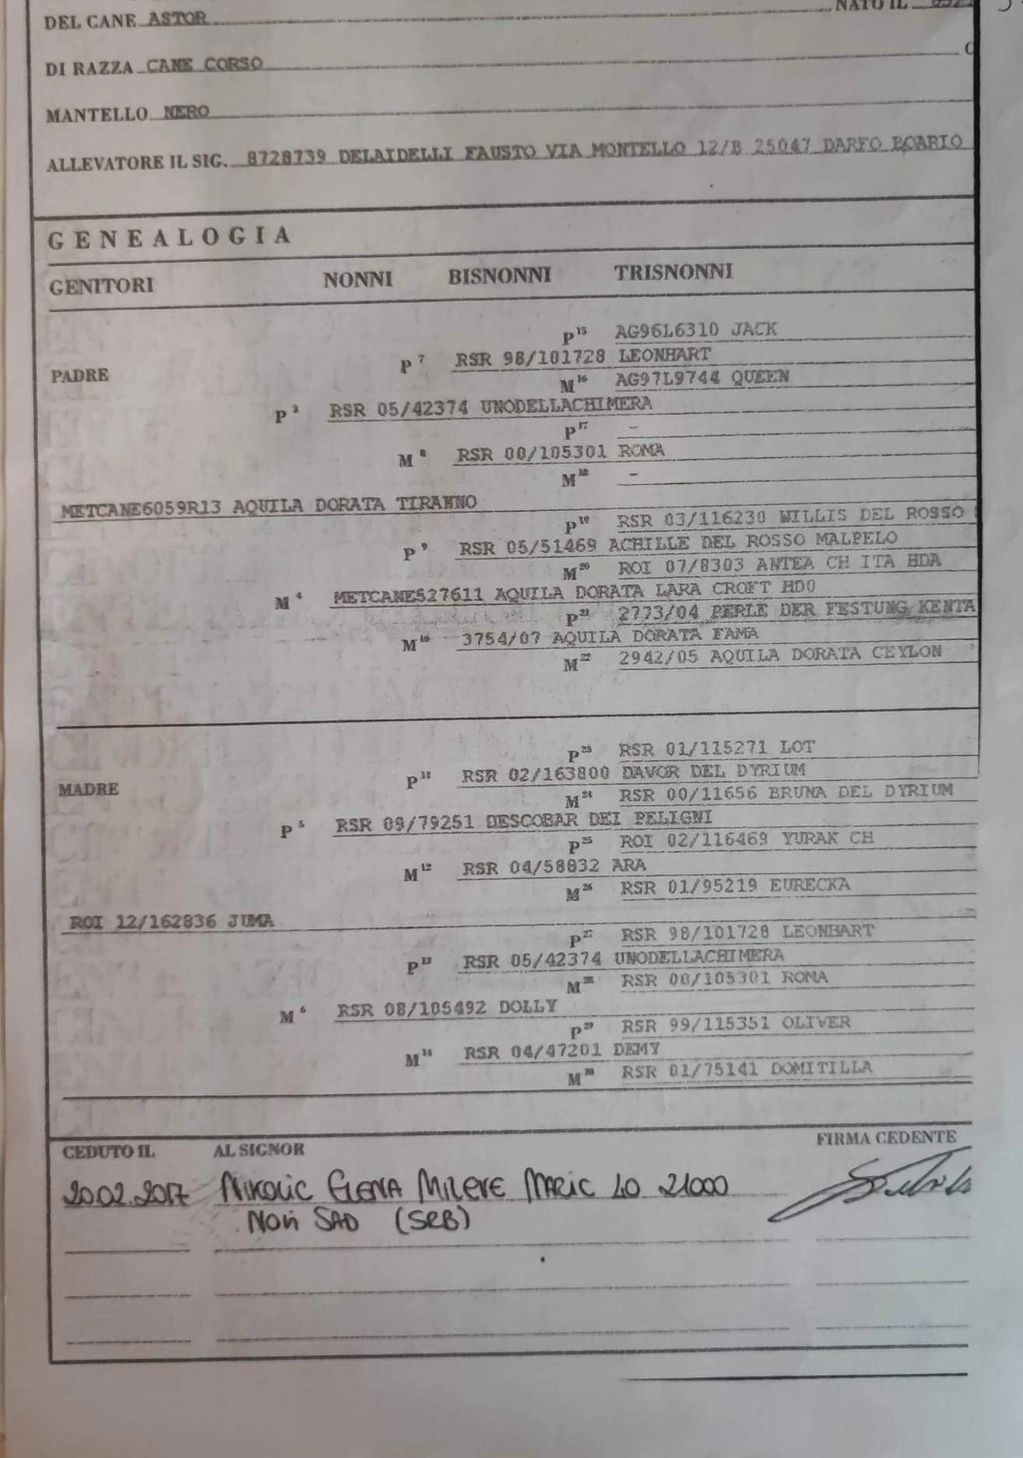 DEL CANE ASTOR NATO IL
DI RAZZA CANE CORSO
MANTELLO NERO
ALLEVATORE IL SIG. 8728739 DELAIDELLI FAUSTO VIA MONTELLO 12/B 25047 DARFO BOARIO
GENEALOGIA
GENITORI NONNI BISNONNI TRISNONNI
P 15 AG96L6310 JACK
P 7 RSR 98/101728 LEONHART
PADRE
M 16 AG97L9744 QUEEN
P 3 RSR 05/42374 UNODELLACHIMERA
P 17 -
M 8 RSR 00/105301 ROMA
M 18 -
METCANE6059R13 AQUILA DORATA TIRANNO
P 19 RSR 03/116230 WILLIS DEL ROSSO
P 9 RSR 05/51469 ACHILLE DEL ROSSO MALPELO
M 20 ROI 07/8303 ANTEA CH ITA HDA
M 4 METCANE527611 AQUILA DORATA LARA CROFT HD0
P 21 2773/04 PERLE DER FESTUNG KENTA
M 10 3754/07 AQUILA DORATA FAMA
M 22 2942/05 AQUILA DORATA CEYLON
P 23 RSR 01/115271 LOT
P 11 RSR 02/163800 DAVOR DEL DYRIUM
MADRE
M 24 RSR 00/11656 BRUNA DEL DYRIUM
P 5 RSR 09/79251 DESCOBAR DEI PELIGNI
P 25 ROI 02/116469 YURAK CH
M 12 RSR 04/58832 ARA
M 26 RSR 01/95219 EURECKA
ROI 12/162836 JUMA
P 27 RSR 98/101728 LEONHART
P 13 RSR 05/42374 UNODELLACHIMERA
M 28 RSR 00/105301 ROMA
M 6 RSR 08/105492 DOLLY
P 29 RSR 99/115351 OLIVER
M 14 RSR 04/47201 DEMY
M 30 RSR 01/75141 DOMITILLA
CEDUTO IL AL SIGNOR FIRMA CEDENTE
20.02.2017 NIKOLIC ELENA MILEVE MARIC 40 21000
NOVI SAD (SRB)